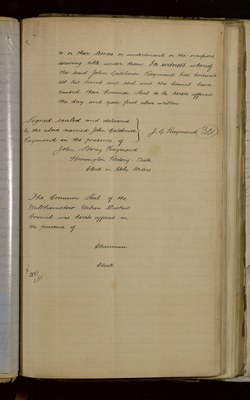 or their Lessees or undertenants or the occupiers
deriving title under them In witness whereof
the said John Goldwin Raymond has hereunto
set his hand and seal and the Council have
caused their Common Seal to be hereto affixed
the day and year first above written
Signed sealed and delivered
by the above named John
Raymond in the presence of
J. G. Raymond
John Raymond
Clerk in Holy Orders
The Common Seal of the
Walthamstow Urban District
Council was hereto affixed in
the presence of
Chairman
Clerk